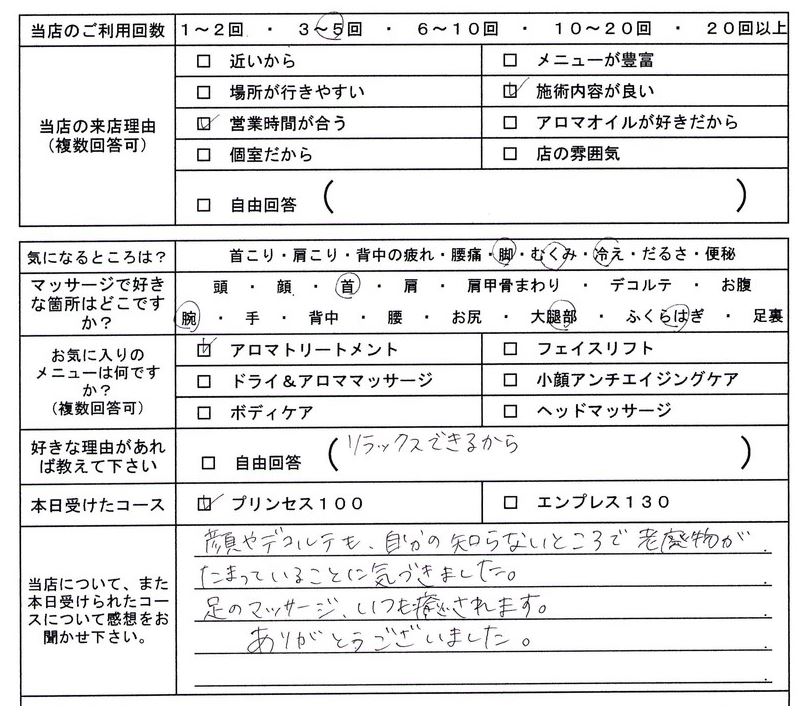 当店のご利用回数 1～2回 ・ 3～5回 ・ 6～10回 ・ 10～20回 ・ 20回以上
当店の来店理由
（複数回答可）
□ 近いから □ メニューが豊富
□ 場所が行きやすい ☑ 施術内容が良い
☑ 営業時間が合う □ アロマオイルが好きだから
□ 個室だから □ 店の雰囲気
□ 自由回答 （ ）
気になるところは？ 首こり・肩こり・背中の疲れ・腰痛・脚・むくみ・冷え・だるさ・便秘
マッサージで好き
な箇所はどこです
か？
頭 ・ 顔 ・ 首 ・ 肩 ・ 肩甲骨まわり ・ デコルテ ・ お腹
腕 ・ 手 ・ 背中 ・ 腰 ・ お尻 ・ 大腿部 ・ ふくらはぎ ・ 足裏
お気に入りの
メニューは何です
か？
（複数回答可）
☑ アロマトリートメント □ フェイスリフト
□ ドライ＆アロママッサージ □ 小顔アンチエイジングケア
□ ボディケア □ ヘッドマッサージ
好きな理由があれ
ば教えて下さい
□ 自由回答 （リラックスできるから ）
本日受けたコース ☑ プリンセス100 □ エンプレス130
当店について、また
本日受けられたコー
スについて感想をお
聞かせ下さい。
顔やデコルテも、自分の知らないところで老廃物が
たまっていることに気づきました。
足のマッサージ、いつも癒されます。
ありがとうございました。